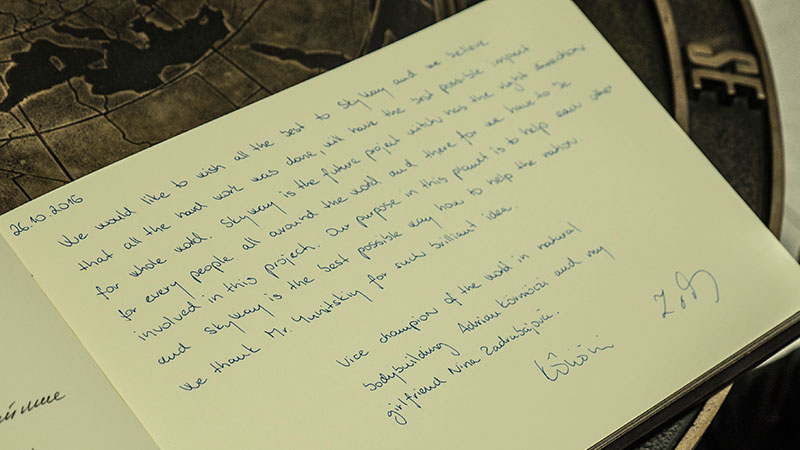 26.10.2016
We would like to wish all the best to SkyWay and we believe
that all the hard work was done, will have the best possible impact
for whole world. SkyWay is the future project witch has the right direction
for every people all around the world and there for we have to be
involved in this project. Our purpose in this planet is to help each other
and SkyWay is the best possible way how to help the nation.
We thank Mr. Yunitskiy for such brilliant idea.
Vice champion of the world in natural
bodybuilding Adrian Körmöczi and my
girlfriend Nina
SE